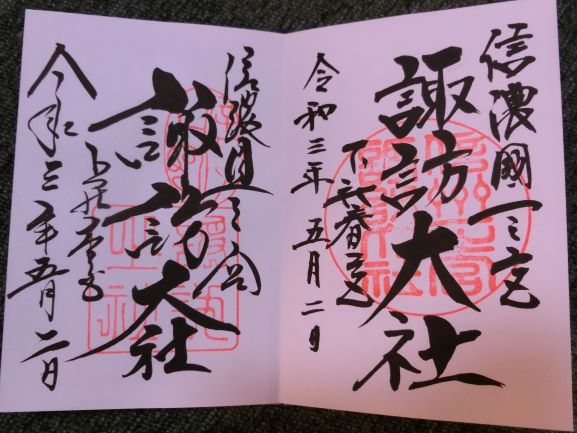 信濃國一之宮
諏訪大社
下社春宮
令和三年 五月二日
信濃國一之宮
諏訪大社
下社秋宮
令和三年五月二日